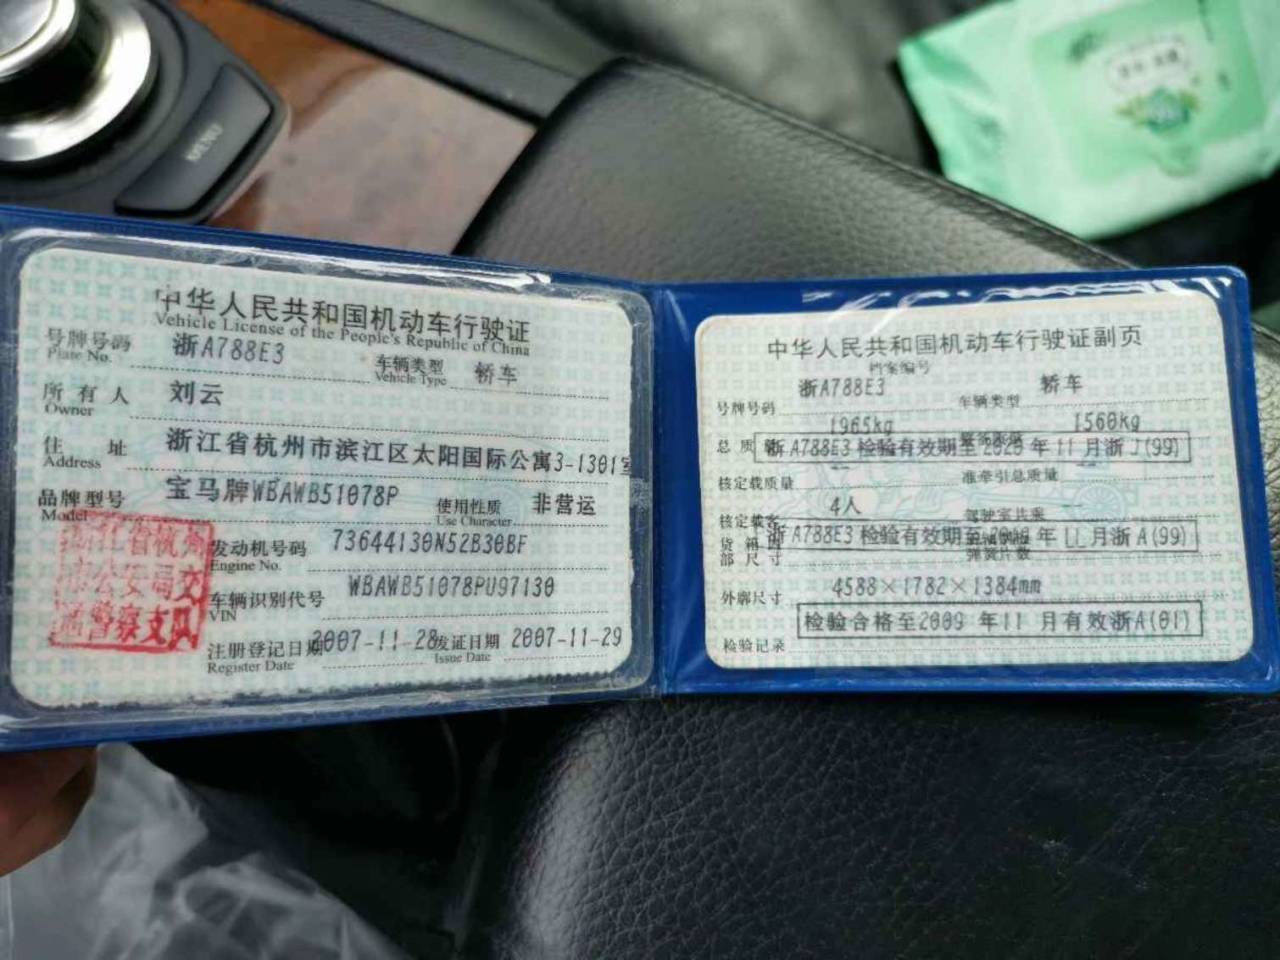 MENU
中华人民共和国机动车行驶证
Vehicle License of the People's Republic of China
号牌号码 浙A788E3 车辆类型 轿车
Plate No. Vehicle Type
所有人 刘云
Owner
住址 浙江省杭州市滨江区太阳国际公寓3-1301室
Address
品牌型号 宝马牌WBAWB51078P 使用性质 非营运
Model Use Character
浙江省杭州市公安局交通警察支队
发动机号码 73644130N52B30BF
Engine No.
车辆识别代号 WBAWB51078PU97130
VIN
注册登记日期 2007-11-28 发证日期 2007-11-29
Register Date Issue Date
中华人民共和国机动车行驶证副页
档案编号
号牌号码 浙A788E3 车辆类型 轿车
总质量 1965kg 1560kg
浙A788E3 检验有效期至2020 年 11 月浙J(99)
核定载质量 -- 准牵引总质量 --
核定载客 4人 驾驶室共乘 --
浙A788E3 检验有效期至 年 11 月浙A(99)
货箱部尺寸 弹簧片数
外廓尺寸 4588×1782×1384mm
检验记录 检验合格至2009 年 11 月有效浙A(01)